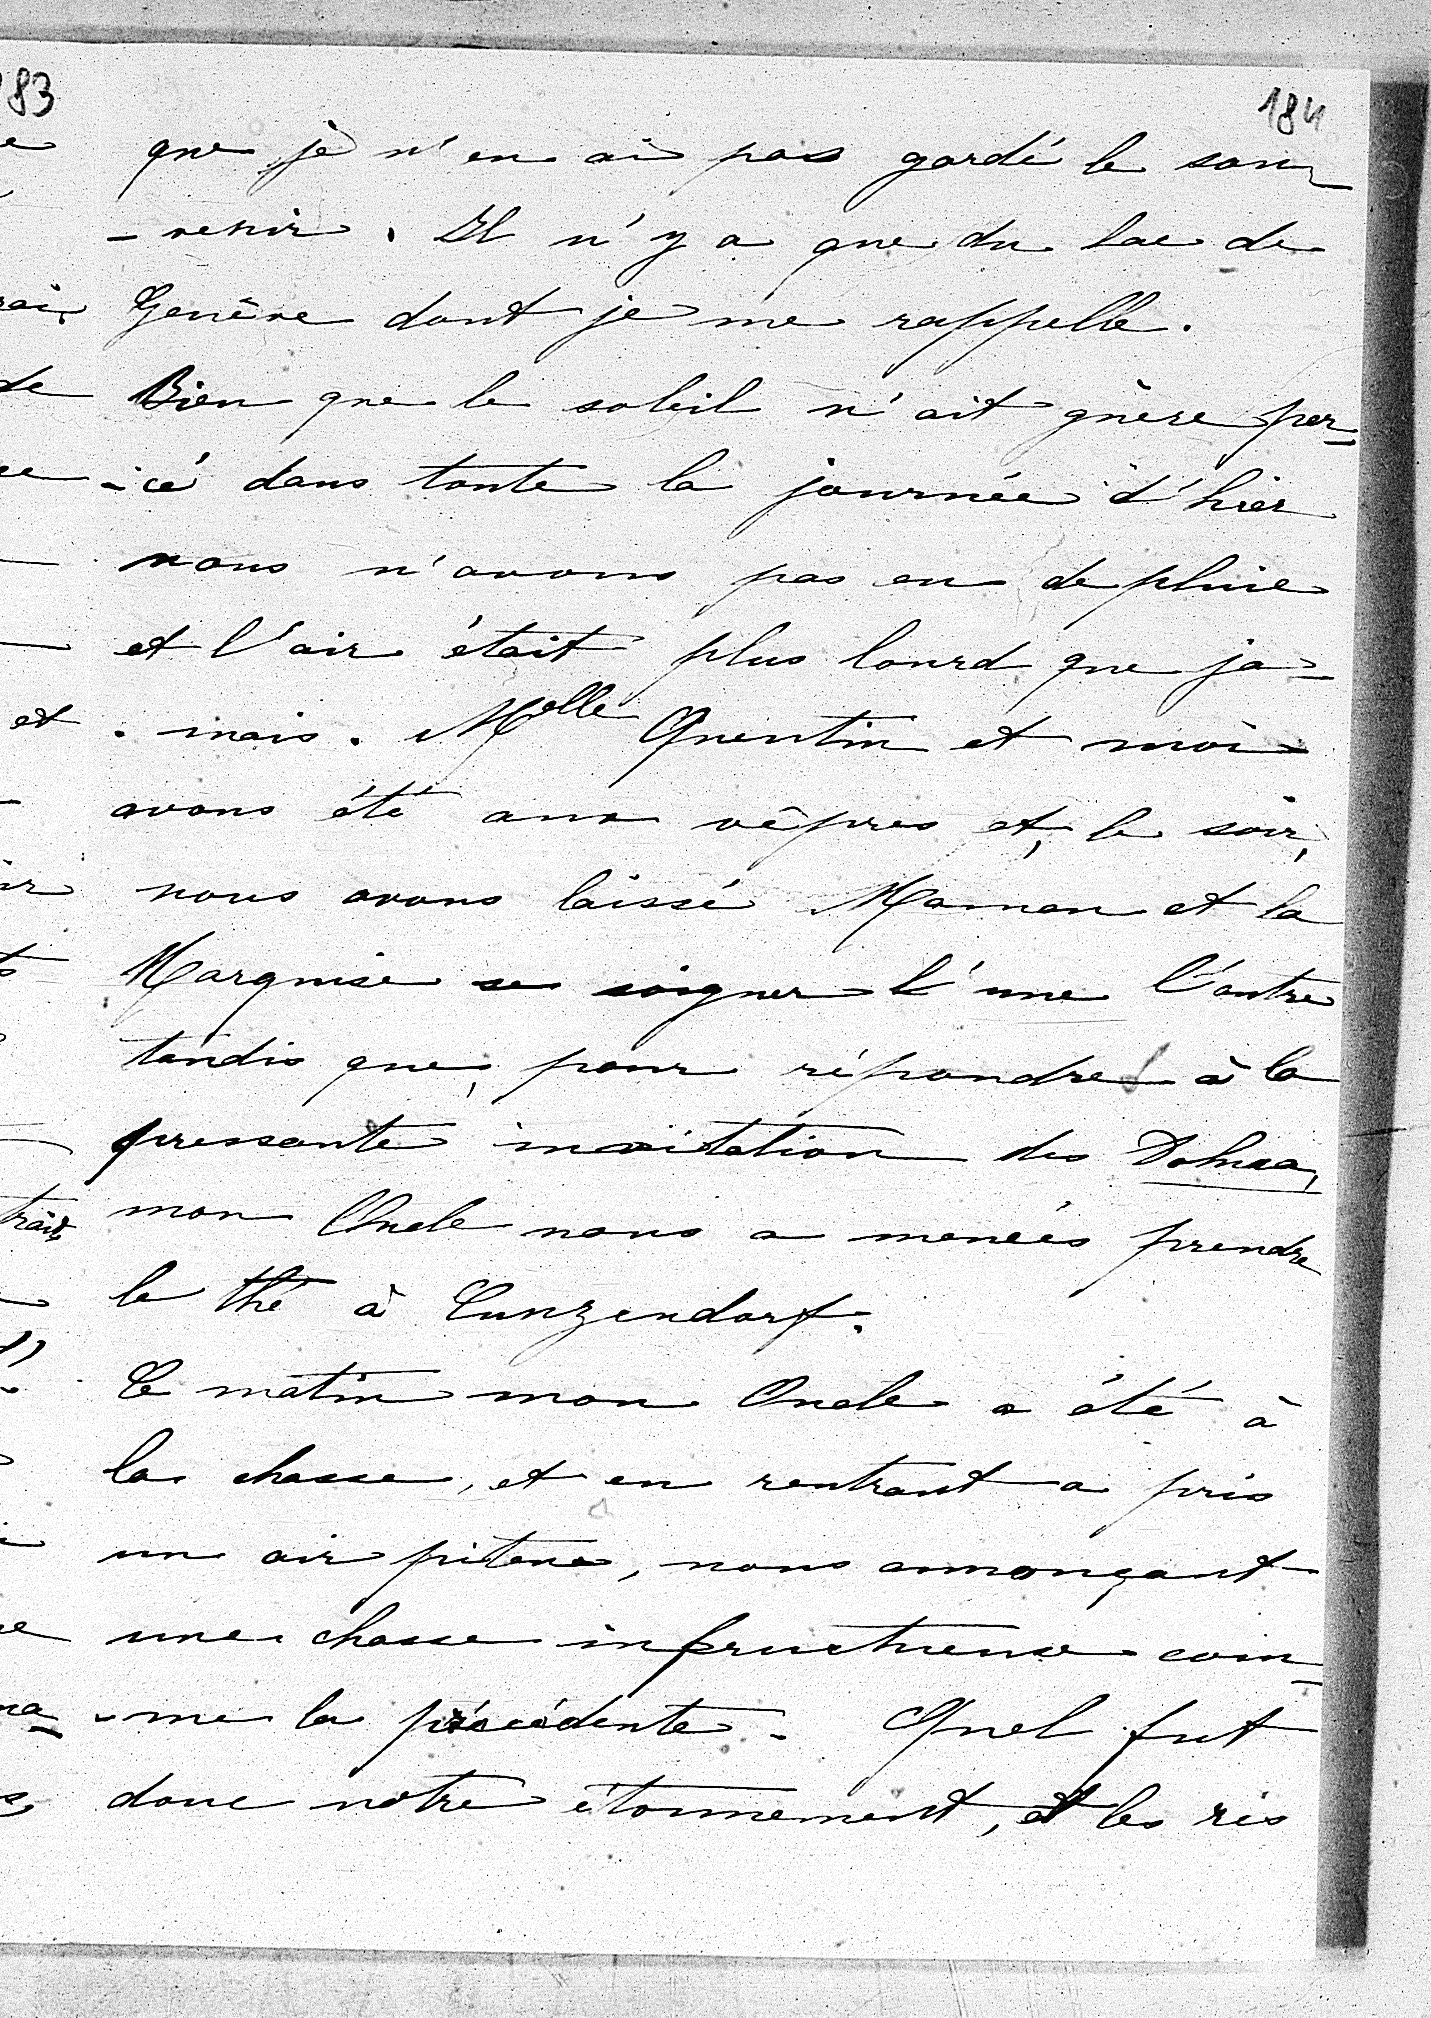 183
184
que je n'en ai pas gardé le sou-
-venir. Il n'y a que du lac de
Genève dont je me rappelle.
Bien que le soleil n'ait guère per-
-cé dans toute la journée d'hier
nous n'avons pas eu de pluie
et l'air était plus lourd que ja-
-mais. Melle Quentin et moi
avons été aux vêpres et, le soir,
nous avons laissé Maman et la
Marquise se soigner l'une l'autre
tandis que, pour répondre à la
pressante invitation des Dohna,
mon Oncle nous a menées prendre
le thé à Cunzendorf.
Ce matin mon Oncle a été à
la chasse, et en rentrant a pris
un air piteux, nous annonçant
une chasse infructueuse com-
-me la précédente. Quel fut
donc notre étonnement, et les ris